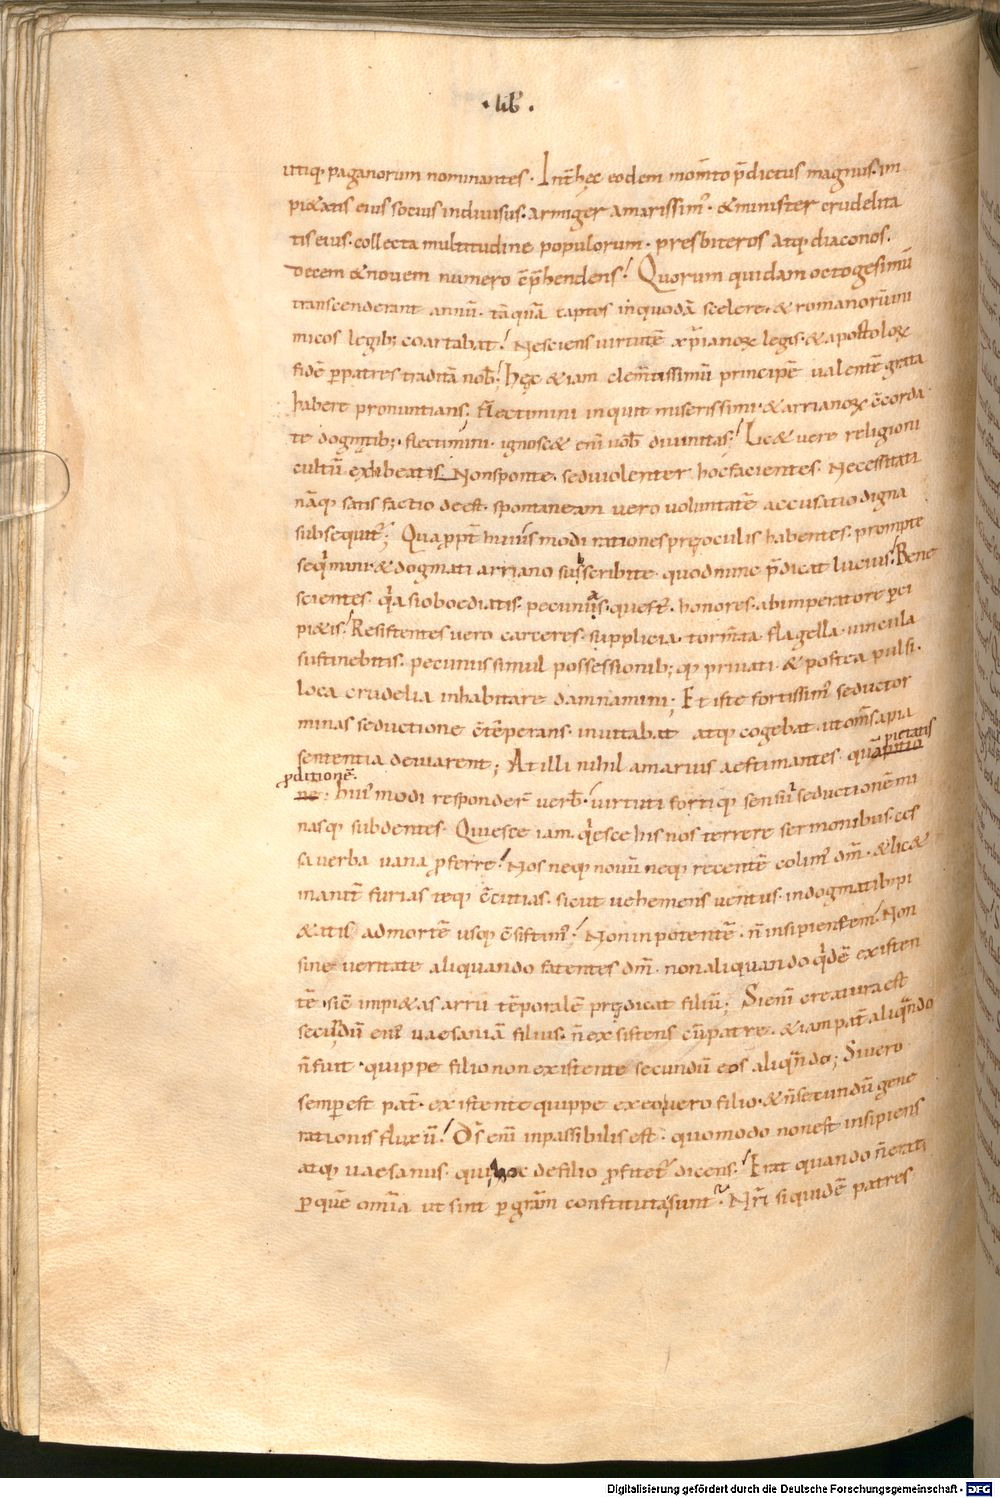 · lib̅ ·
utiq· paganorum nominantes · Int̅ hęc eodem mom̅to p̅dictus magnus· im
pi&atis eius socius indiuisus· armiger amarissim᾽ · & minister crudelita
tis eius· collecta multitudine populorum · presbiteros atq· diaconos.
decem & novem numero c̅p̅hendens! Quorum quidam octogesimū
transcenderant annū· tāquā captos in quodā scelere· & romanorū ini
micos legib; coartabat! Nesciens uirtutē xp̅ianoꝝ legis· & apostoloꝝ
fidē p patres traditā nob̅! hęc & iam clem̅tissimū principē ualentē grata
habere pronuntians; flectimini inquit miserissimi· & arrianoꝝ c̅corda
te dogmatib; · flectimini · ignosc& eni̅ uob̅ diuinitas! Lic& uere religioni
cultū exhibeatis Non sponte· sed uiolenter hoc facientes· Necessitati
nāq· satis factio deest· spontaneam uero uoluntatē accusatio digna
subsequit᾽; Quappt̅ huius modi rationes pręoculis habentes· prompte
seq̅mini· & dogmati arriano susbscribite· quod nunc p̅dicat lucius! Bene
scientes· q̅a si oboediatis· pecunias· quęst᾽· honores· ab imperatore perci
pi&is! Resistentes uero carceres· supplicia· torm̅ta flagella· uincula
sustinebitis· pecuniis simul possessionib; q· priuati· & postea pulsi·
loca crudelia inhabitare damnamini; Et iste fortissim᾽ seductor
minas seductione c̅tēperans· inuitabat atq· cogebat· ut om̅s a pia
sententia deuiarent; At illi nihil amarius aestimantes· quā pietatis
proditionē·
ne; hui᾽ modi responder̅ uerb̅! uirtuti fortiq· sensui seductionē mi
nasq· subdentes· Quiesce iam· q̅esce his nos terrere sermonibus· ces
sa uerba uana proferre! Nos neq· nouū neq· recentē colim᾽ dm̅· & lic&
inanit̅ furias teq· c̅cutias· sicut uehemens uentus· in dogmatib; pi
&atis ad mortē usq· c̅sistim᾽! Non inpotentē · n̅ insipientem! Non
sine ueritate aliquando fatentes dm̅· non aliquando q̅dē existen
tē· sic̅ impi&as arrii tēporalē prędicat filiū; Si eni̅ creatura est
secundū eius uaesaniā filius· n̅ exsistens cū patre· & iam pat̅ aliq̅ndo
n̅ fuit· quippe filio non existente secundū eos aliq̅ndo; Si uero
semper est pat̅· existente quippe ex eo uero filio· & n̅ secundū gene
rationis fluxū! D̅s eni̅ inpassibilis est· quomodo non est insipiens
atq· uaesanus· qui hoc de filio profitet᾽ dicens! Erat quando n̅ erat·
per quē om̅ia ut sint p gr̅am constituta sunt? Nr̅i siquidē patres